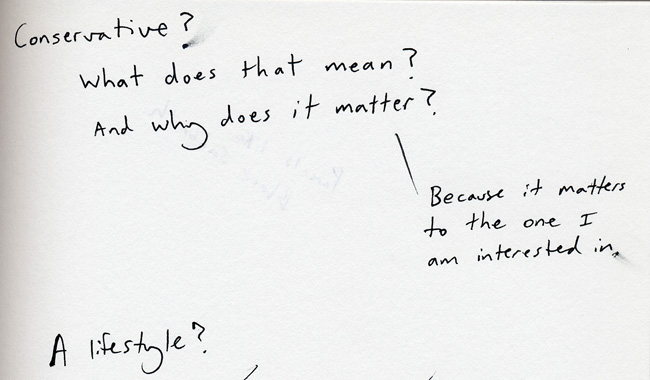 Conservative?
What does that mean?
And why does it matter?
Because it matters
to the one I
am interested in.
A lifestyle?